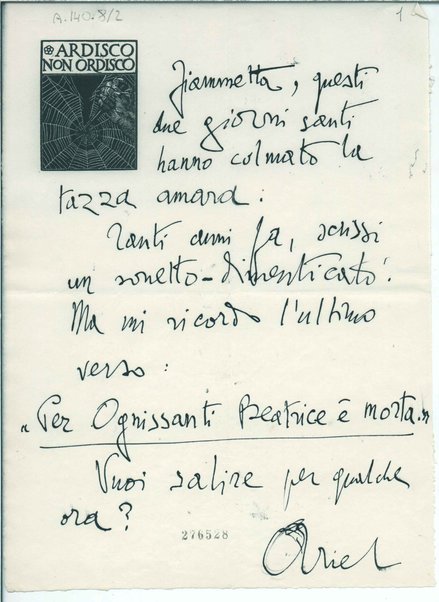 A.140.8/2
1
ARDISCO
NON ORDISCO
Fiammetta, questi
due giorni santi
hanno colmato la
tazza amara:
Tanti anni fa, scrissi
un sonetto - dimenticato.
Ma mi ricordo l'ultimo
verso:
"Per Ognissanti Beatrice è morta."
Vuoi salire per qualche
ora?
276528
Ariel